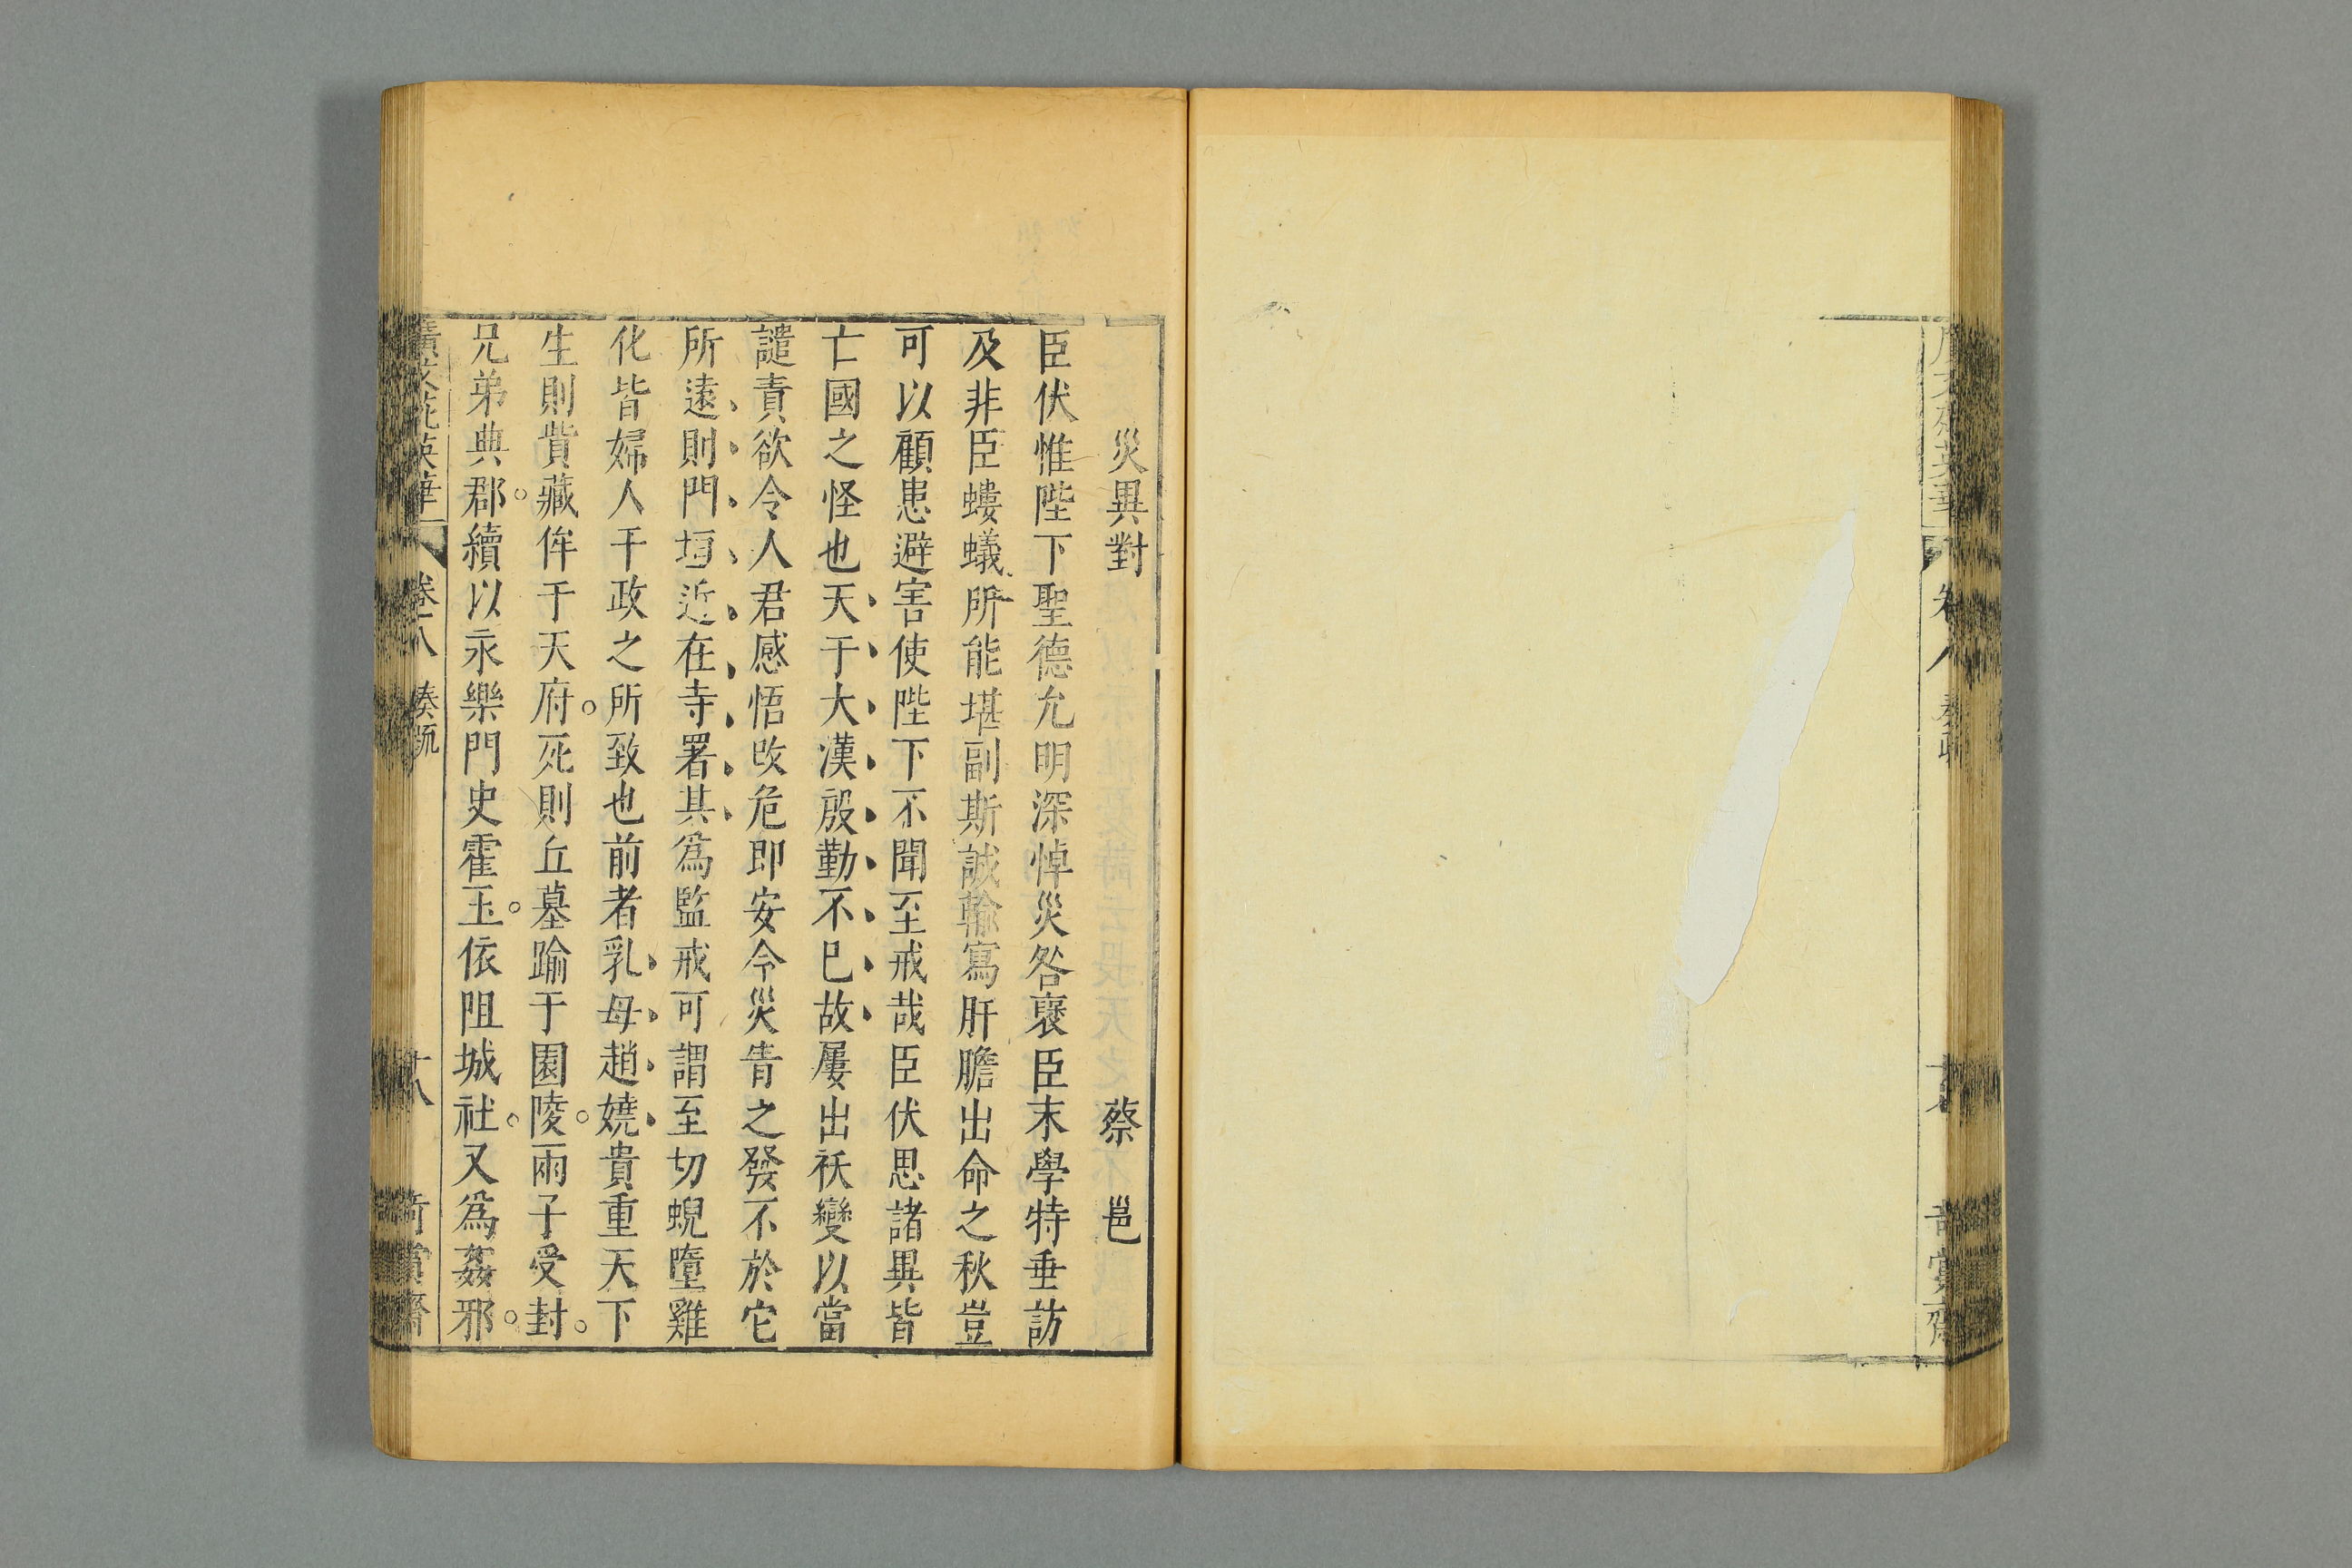 災異對 蔡邕
臣伏惟陛下聖德允明深悼災咎裦臣末學特垂訪
及非臣螻蟻所能堪副斯誠輸寫肝膽出命之秋豈
可以顧患避害使陛下不聞至戒哉臣伏思諸異皆
亡國之怪也天于大漢殷勤不已故屢出祅變以當
譴責欲令人君感悟改危即安今災眚之發不於它
所遠則門垣近在寺署其爲監戒可謂至切蜺墮雞
化皆婦人干政之所致也前者乳母趙嬈貴重天下
生則貲藏侔于天府死則丘墓踰于園陵兩子受封
兄弟典郡續以永樂門史霍玉依阻城社又爲姦邪
廣文苑英華 卷八 奏疏 十八
卷八 奏疏